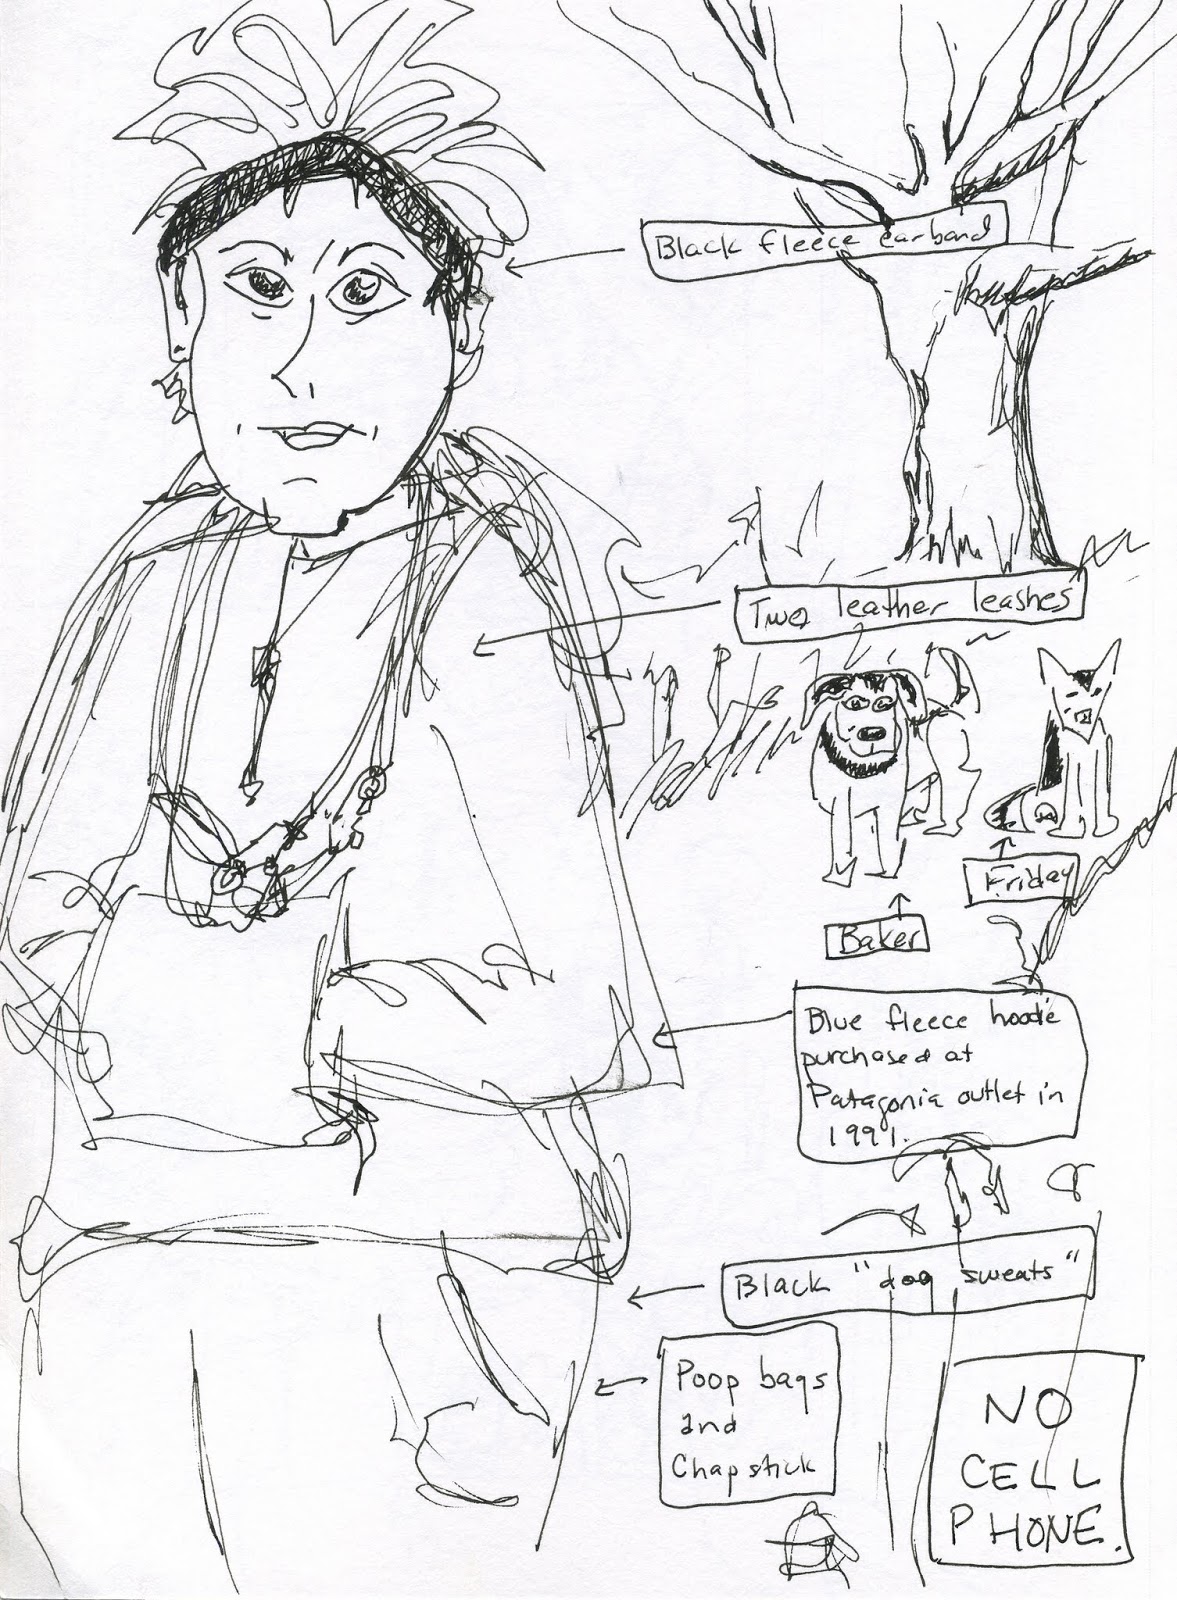 Black fleece earband
Two leather leashes
Friday
Baker
Blue fleece hoodie
purchased at
Patagonia outlet in
1991.
Black "dog sweats"
Poop bags
and
Chapstick
NO
CELL
PHONE.